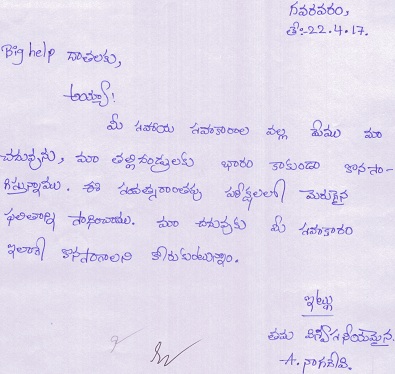 గవరవరం,
తేః-22.4.17.
Big help దాతలకు,
అయ్యా!
మీ సహాయ సహకారాల వల్ల మేము మా
చదువును, మా తల్లిదండ్రులకు భారం కాకుండా కొనసా-
గిస్తున్నాము. ఈ సంవత్సరాంతపు పరీక్షలలో మెరుగైన
ఫలితాన్ని సాధించాము. మా చదువుకు మీ సహకారం
ఇలాగే కొనసాగాలని కోరుకుంటున్నాం.
ఇట్లు
తమ విశ్వసనీయమైన.
-A. నాగదేవి.